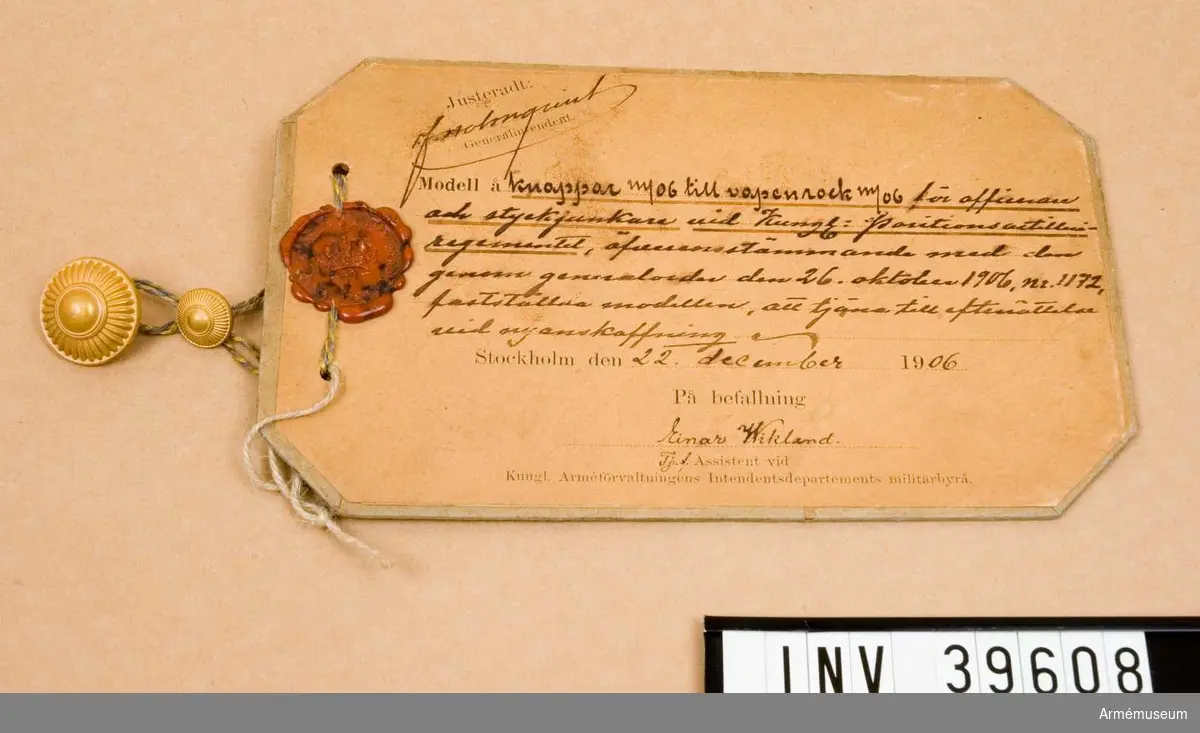 Justeradt:
Holmquist
Generalintendent.
Modell å knappar m/06 till vapenrock m/06 för officerare
och styckjunkare vid Kungl: Positionsartilleri-
regementet, öfverensstämmande med den
genom generalorder den 26. oktober 1906, nr. 1172,
fastställda modellen, att tjäna till efterrättelse
vid nyanskaffning
Stockholm den 22. december 1906
På befallning
Einar Wikland.
Tj.f. Assistent vid
Kungl. Arméförvaltningens Intendentsdepartements militärbyrå.
INV 39608
Armémuseum